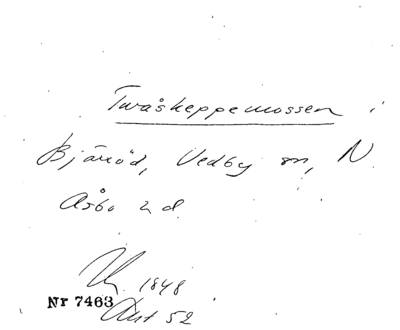 Tvåskeppemossen i
Bjärröd, Vedby sn, N.
Åsbo hd.
1848
Nr 7463
52